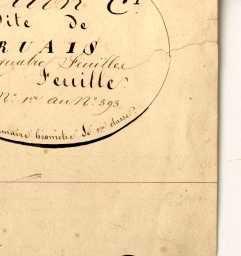 Dite de
RUAIS
quatre Feuilles
Feuille
N.º 1er au N.º 393.
Géomètre de 1re classe